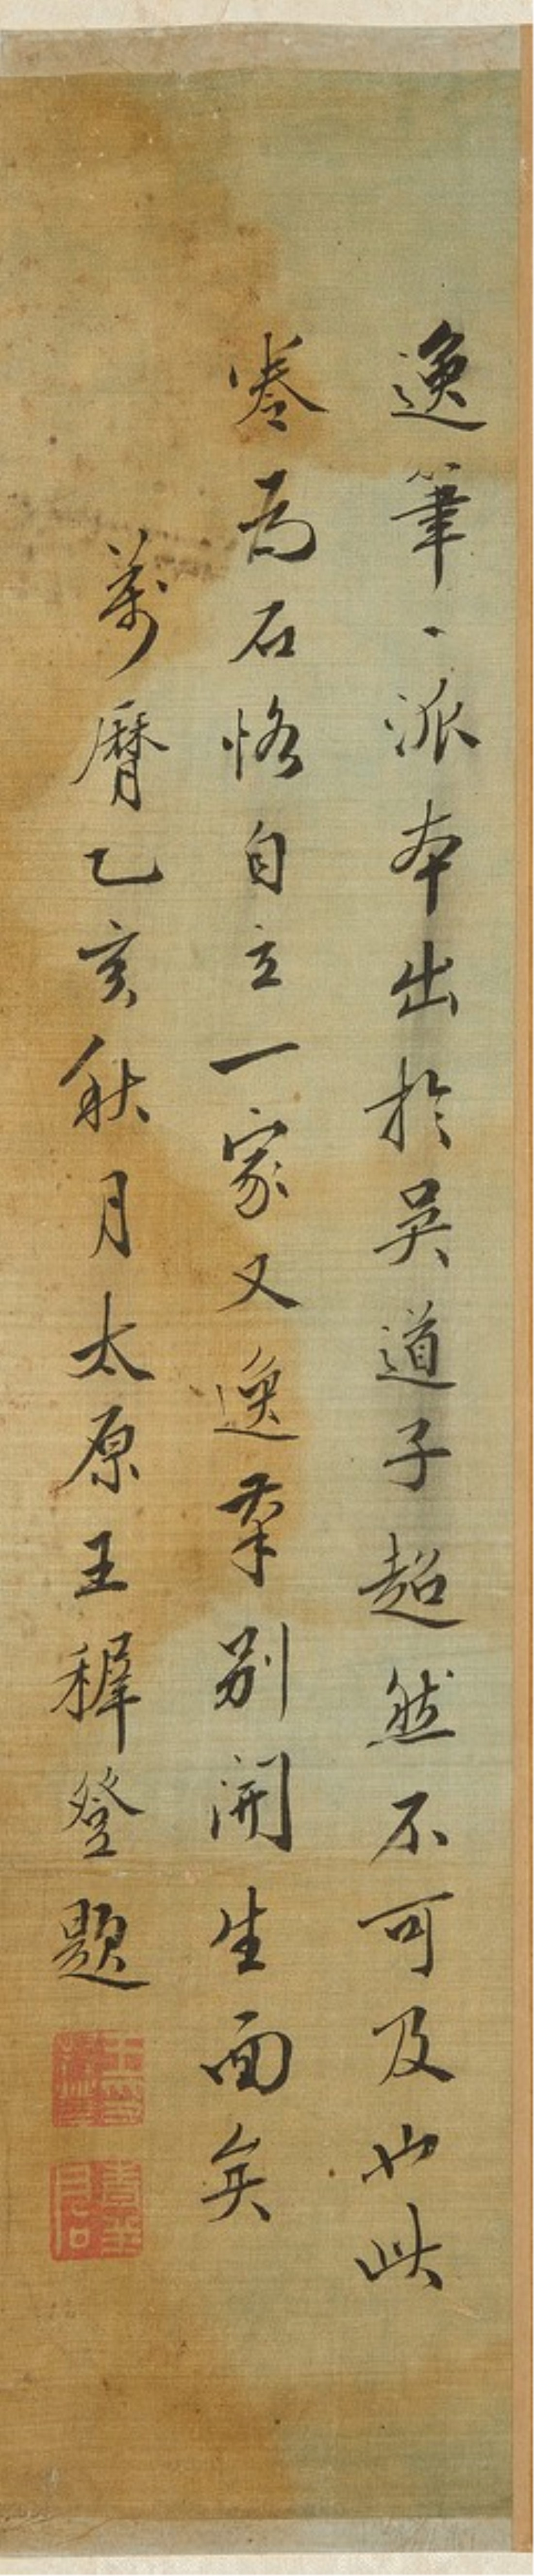 逸筆一派本出於吳道子超然不可及也此
卷為石恪自立一家又逸羣別開生面矣
萬曆乙亥秋月太原王穉登題